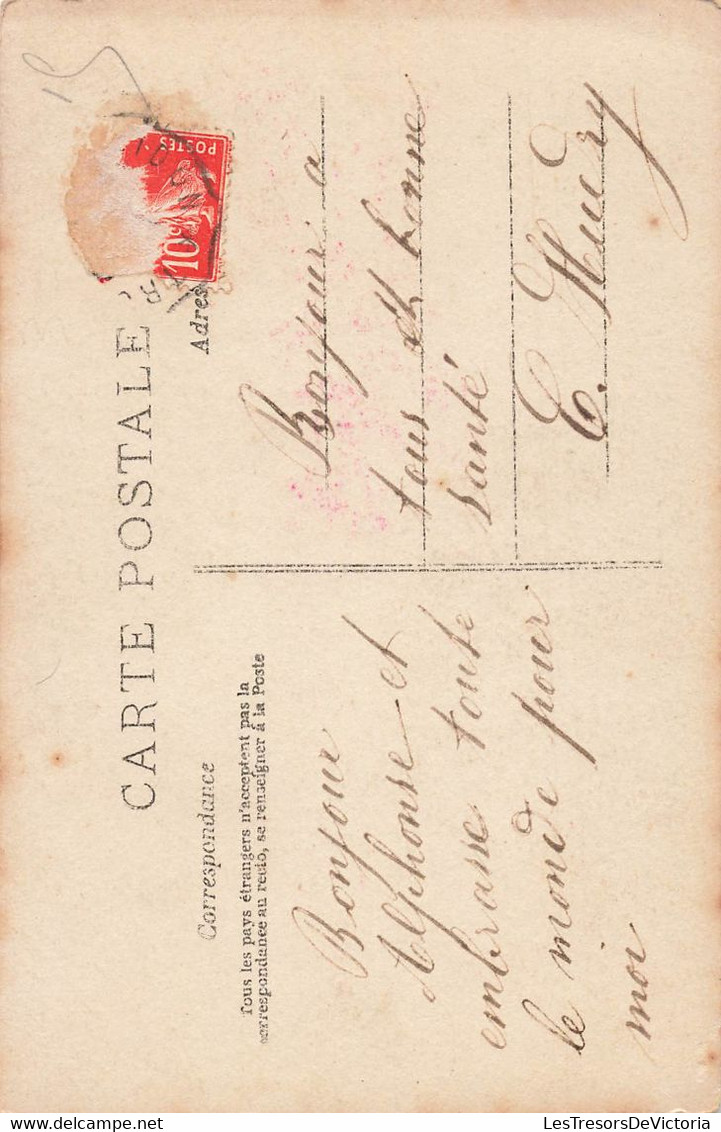 CARTE POSTALE
Correspondance
Tous les pays étrangers n'acceptent pas la
correspondance au recto, se renseigner à la Poste
Bonjour
Alphonse et
embrasse toute
le monde pour
moi
Adres
POSTES
10c
Bonjour a
tous et bonne
santé
E. Hudry
Delcampe.net
LesTresorsDeVictoria